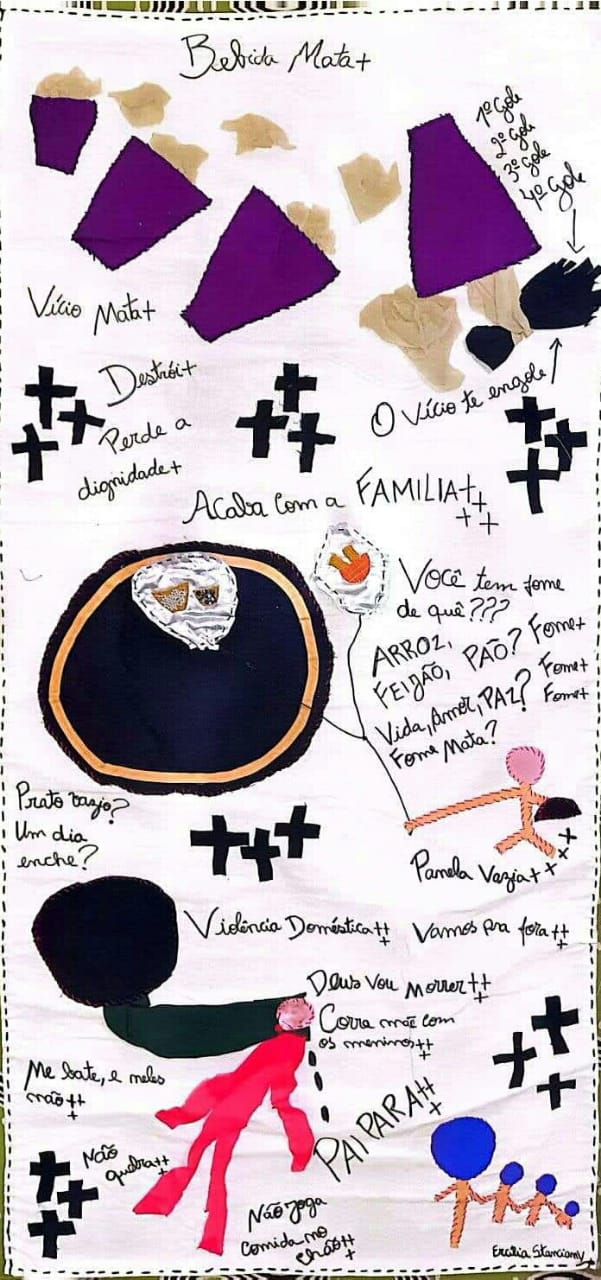 Bebida Mata+
1º Gole
2º Gole
3º Gole
4º Gole
Vício Mata+
Destrói+
Perde a
dignidade+
O Vício te engole
Acaba com a FAMILIA+++
Você tem fome
de quê???
ARROZ,
FEIJÃO, PÃO? Fome+
Fome+
Vida, Amor, PAZ? Fome+
Fome Mata?
Prato vazio?
Um dia
enche?
Panela Vazia+++
Violência Doméstica+++
Vamos pra fora+++
Deus Vou Morrer+++
Corra mãe com
os meninos+++
Me bate, e neles
não+++
PAI PARA+++
Não
quebra+++
Não joga
comida no
chão+++
Ercilia Stanciany